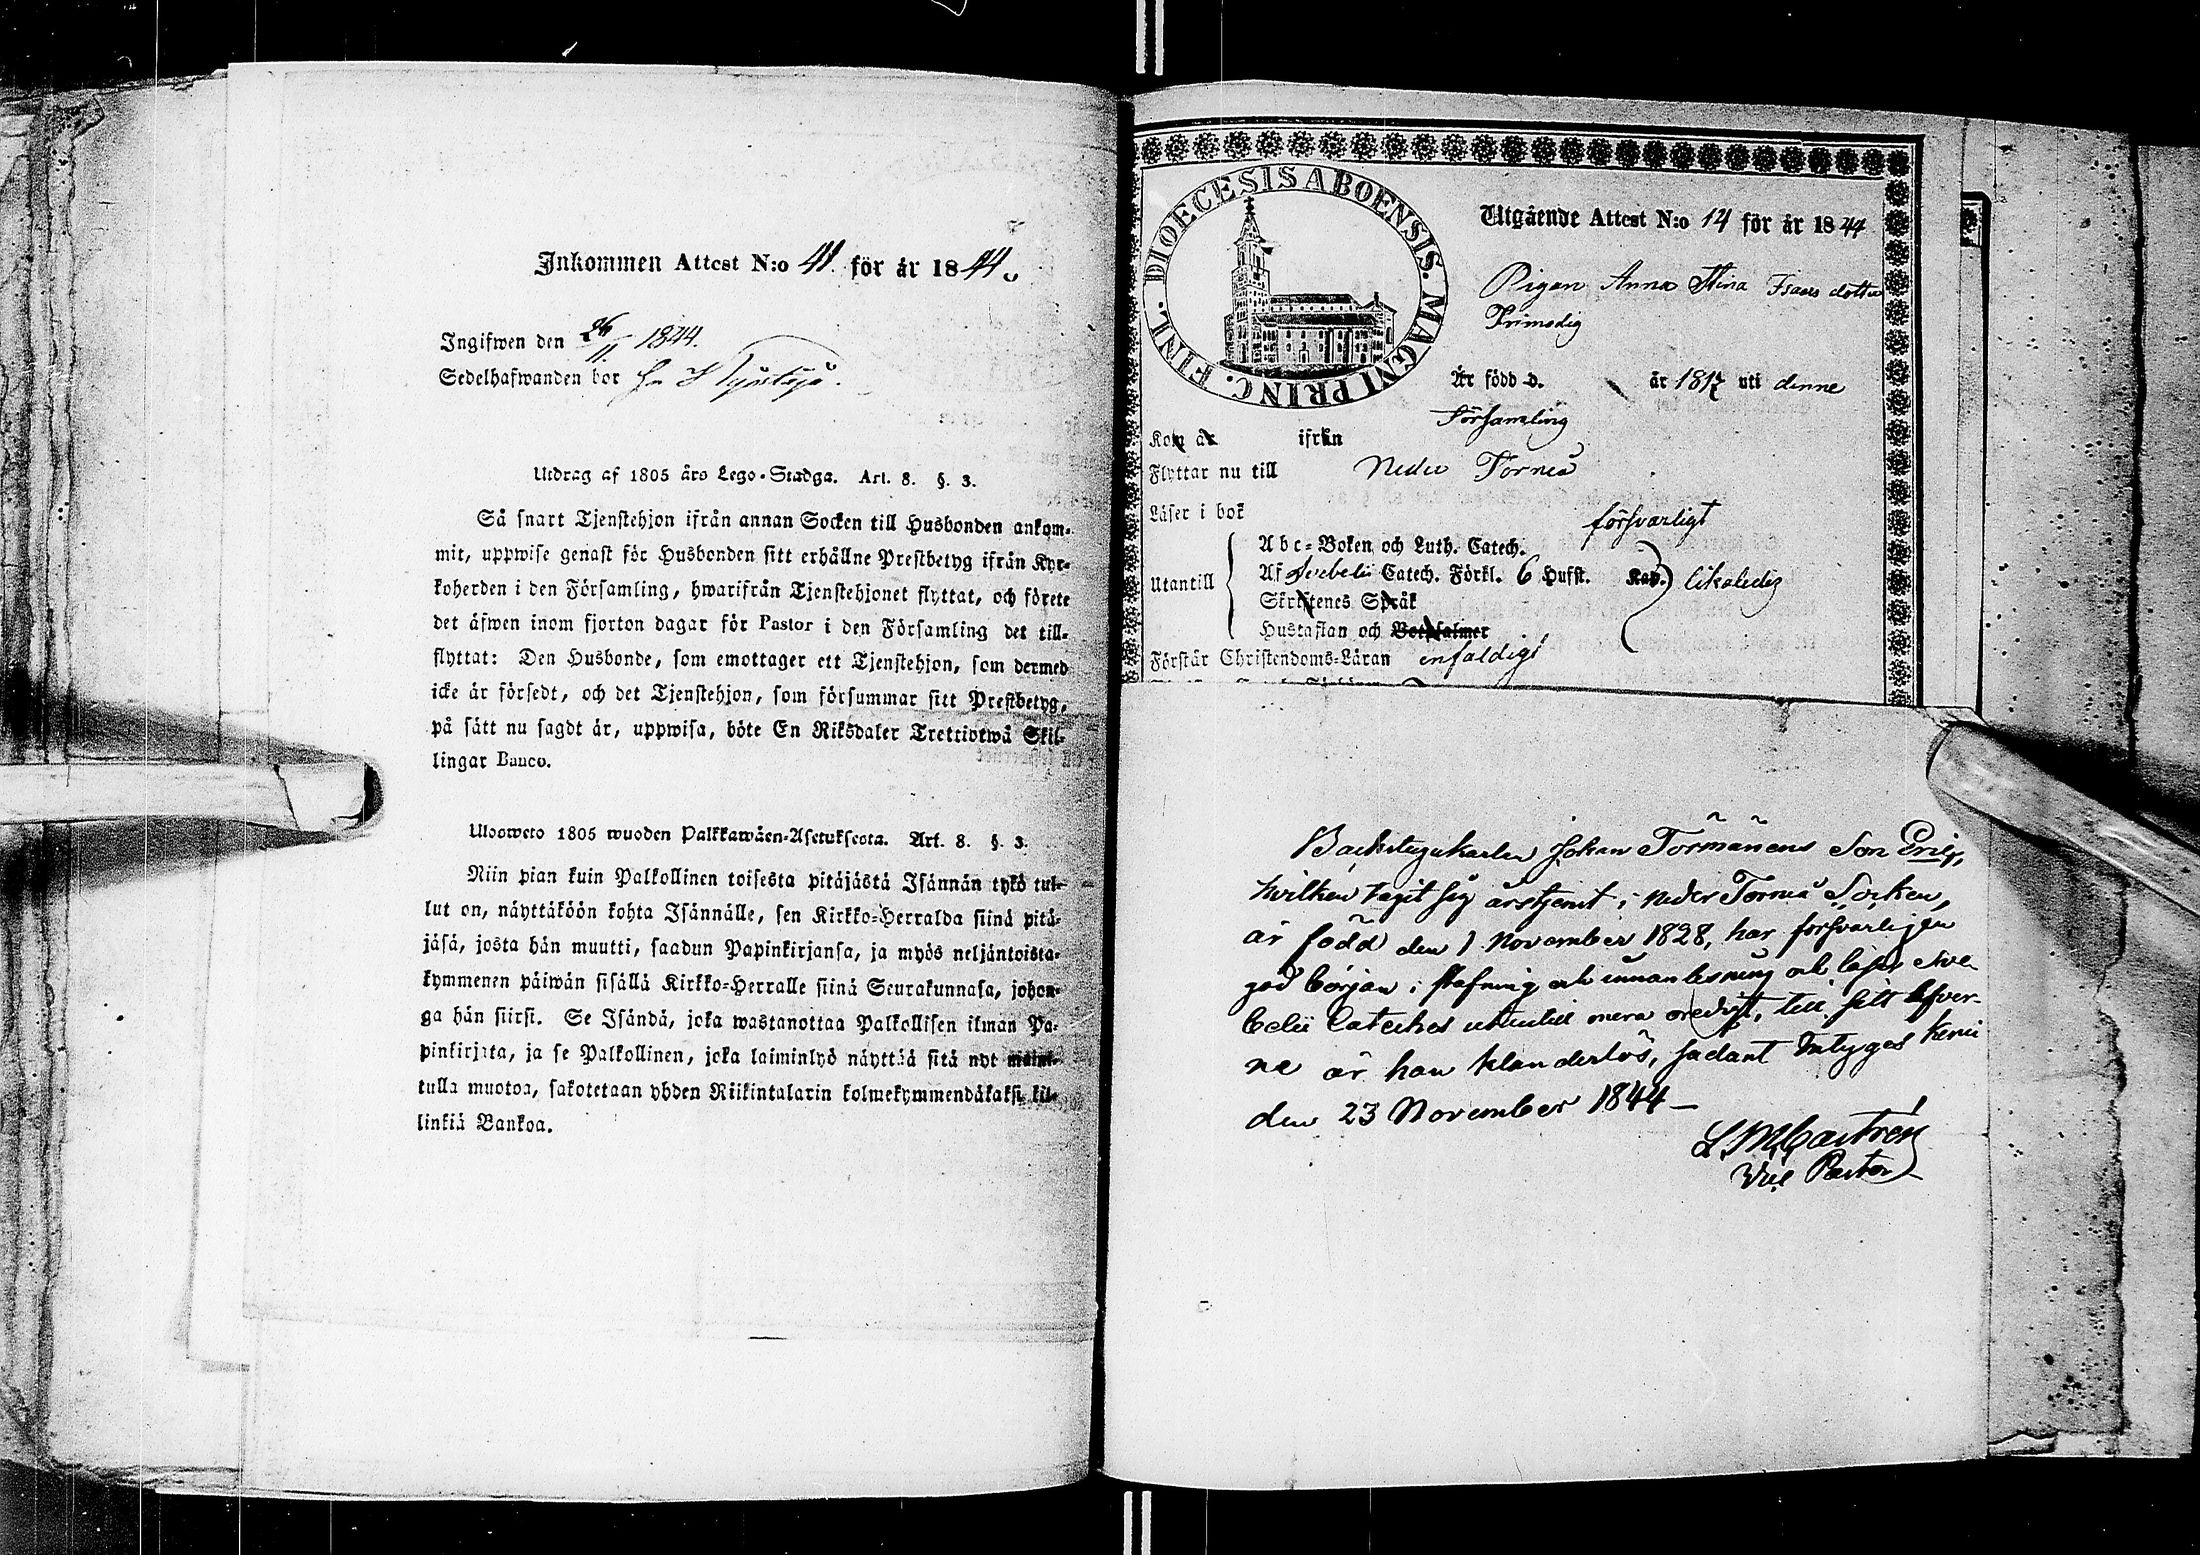 Inkommen Attest N:o 41. för år 1844.
Ingifwen den 26/11 1844.
Sedelhafwanden bor
Utdrag af 1805 års Lego-Stadga. Art. 8. §. 3.
Så snart Tjenstehjon ifrån annan Socken till Husbonden ankom-
mit, uppwise genast för Husbonden sitt erhållne Prestbetyg ifrån Kyr-
koherden i den Församling, hwarifrån Tjenstehjonet flyttat, och förete
det äfwen inom fjorton dagar för Pastor i den Församling det till-
flyttat: Den Husbonde, som emottager ett Tjenstehjon, som dermed
icke är försedt, och det Tjenstehjon, som försummar sitt Prestbetyg,
på sätt nu sagdt är, uppwisa, böte En Riksdaler Trettiotwå Skil-
lingar Banco.
Ulosweto 1805 wuoden Palkkawäen-Asetuksesta. Art. 8. §. 3.
Niin pian kuin Palkollinen toisesta pitäjästä Isännän tykö tul-
lut on, näyttäköön kohta Isännälle, sen Kirkko-Herralda siinä pitä-
jäsä, josta hän muutti, saadun Papinkirjansa, ja myös neljäntoista-
kymmenen päiwän sisällä Kirkko-Herralle siinä Seurakunnasa, johon-
ga hän siirsi. Se Isändä, joka wastanottaa Palkollisen ilman Pa-
pinkirjata, ja se Palkollinen, joka laiminlyö näyttää sitä nyt maini-
tulla muotoa, sakotetaan yhden Riikintalarin kolmekymmendäkaksi kil-
linkiä Bankoa.
DIOECESIS ABOENSIS. MAGNI PRINC. FINL.
Utgående Attest N:o 14 för år 1844
Pigan Anna Stina Isaks dotter
Trimodig
Är född d. år 1817 uti denne
Församling
Kom år ifrån
Flyttar nu till Neder Torneå
Läser i bok försvarligt
Utantill
Abc-Boken och Luth. Catech.
Af Svebelii Catech. Förkl. 6 Hufst. Kap. likaledes
Skriftenes Språk
Hustaflan och Botpsalmer
Förstår Christendoms-Läran enfaldigt
Backstugukarlen Johan Törmänens Son Eric,
hvilken tagit sig årstjenst i neder Torneå Socken,
är född den 1 November 1828, har försvarligen
god början i stafning och innanläsning och läser Sve-
belii Cateches utantill mera oredigt, till sitt lefver-
ne är han klanderlös, sådant intygas Kemi
den 23 November 1844 –
L M Castrén
Vice Pastor